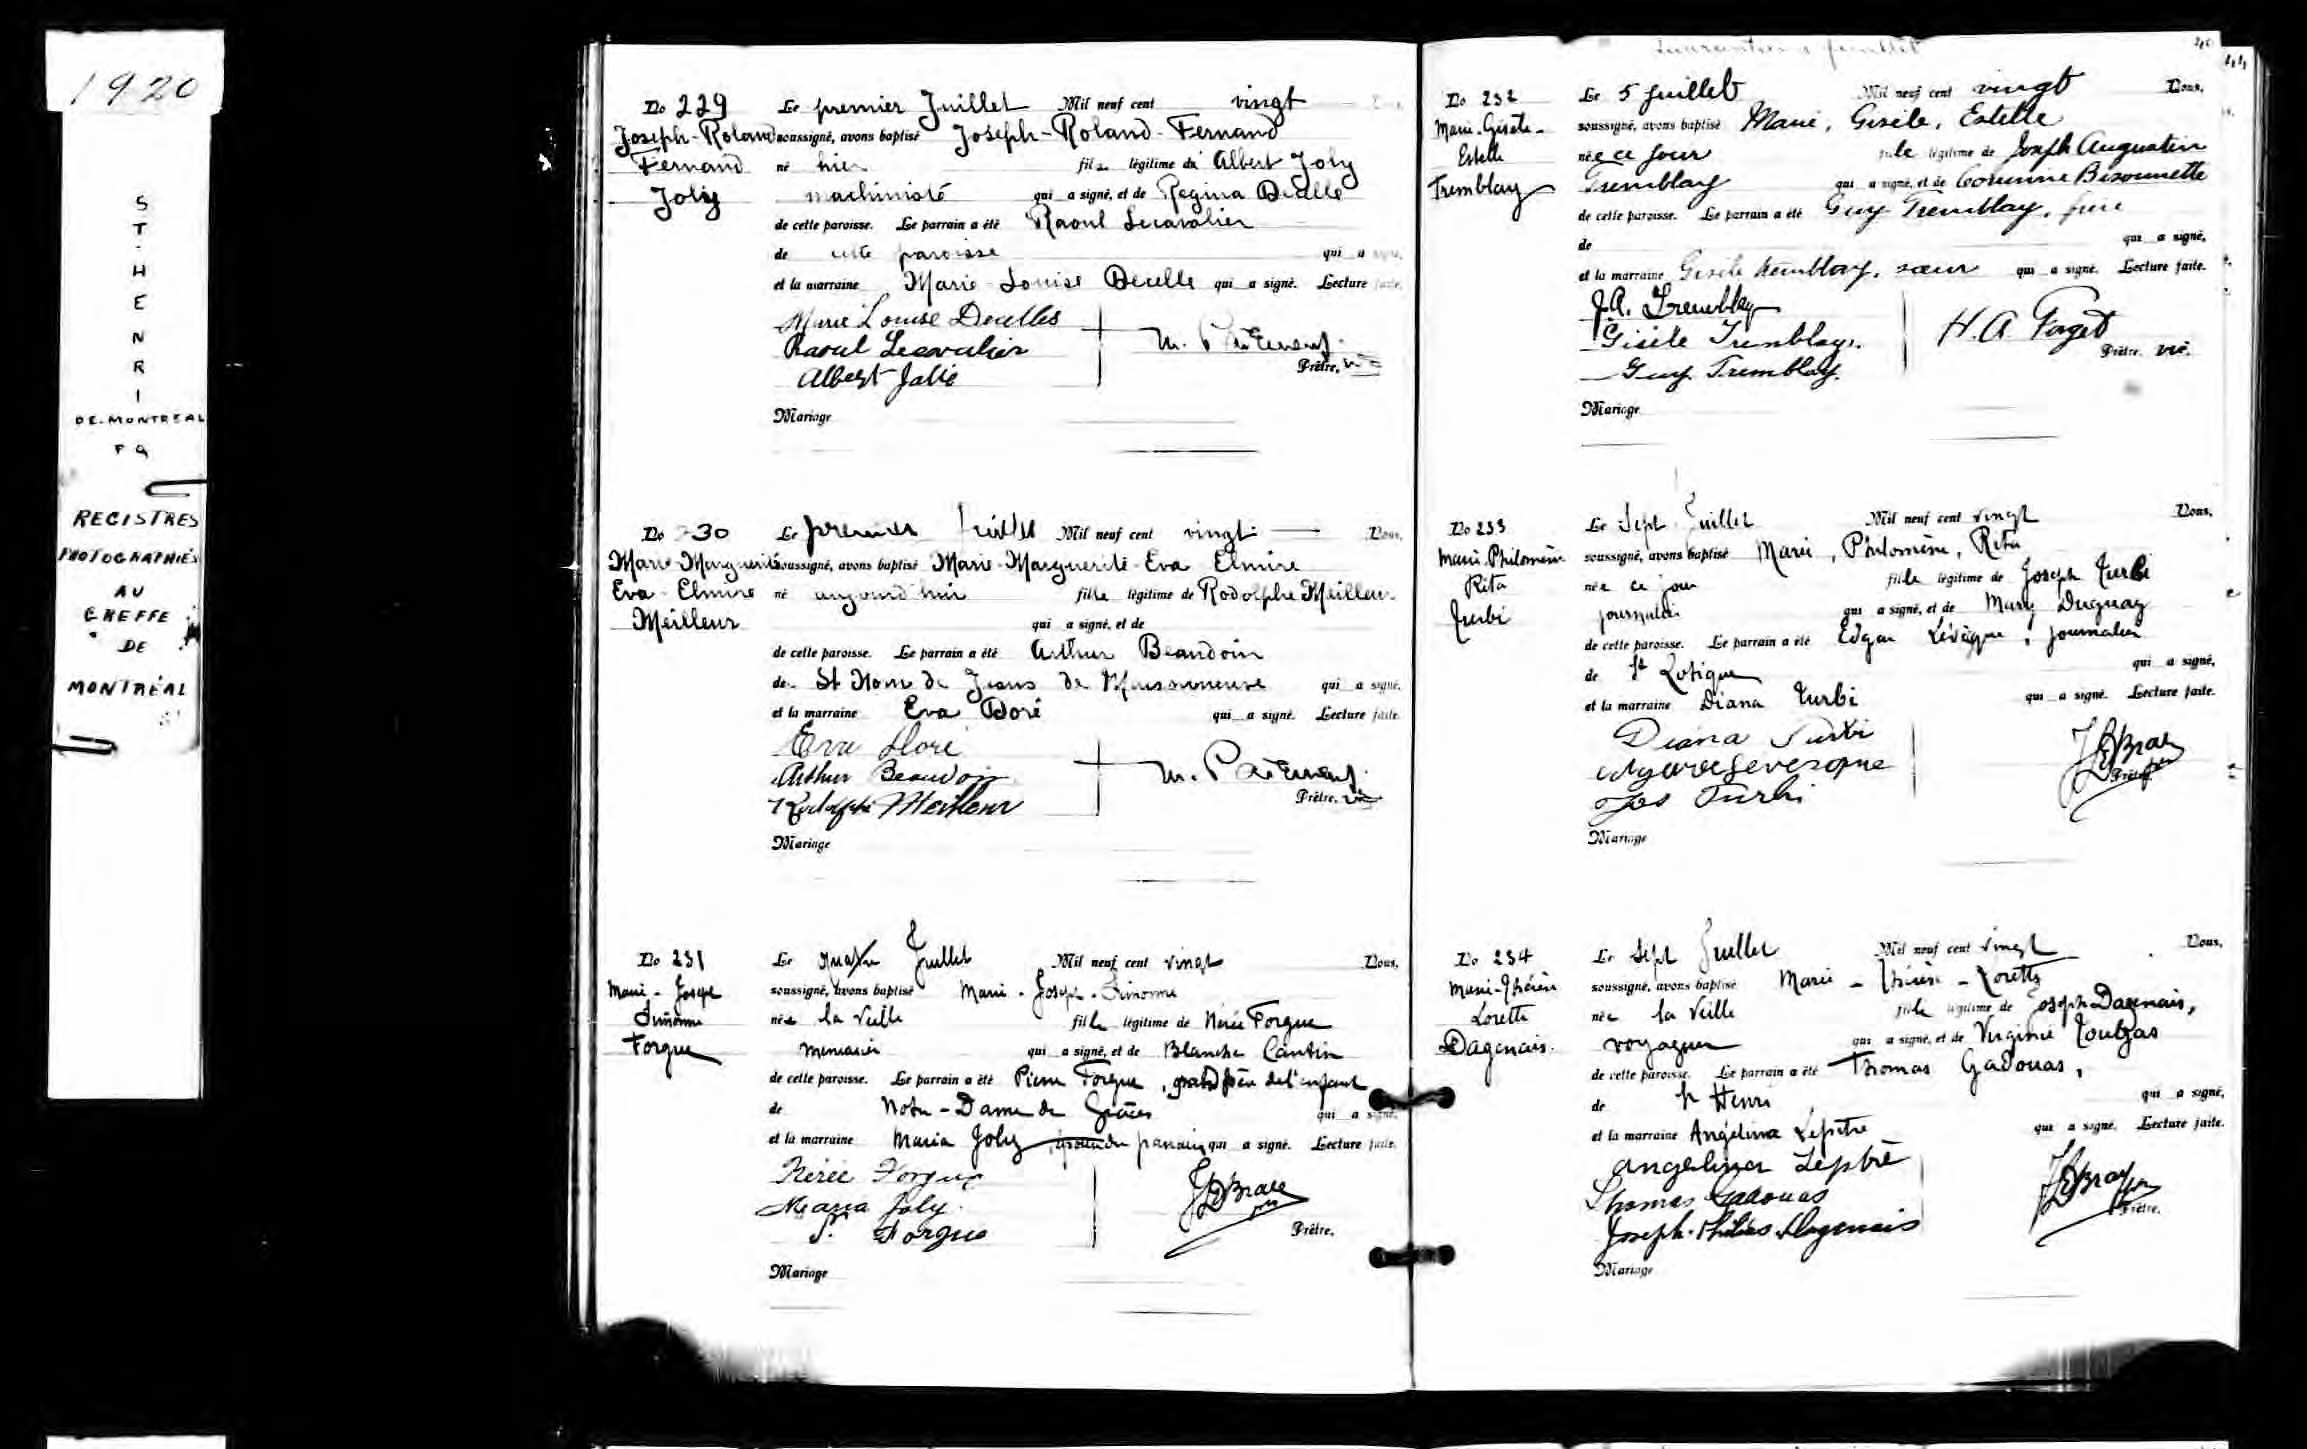 1920
ST. HENRI
DE-MONTREAL
P Q
REGISTRES
PHOTOGRAPHIÉS
AU
GREFFE
DE
MONTRÉAL
No 229
Joseph-Roland
Fernand
Joly
Le premier Juillet Mil neuf cent vingt
soussigné, avons baptisé Joseph-Roland-Fernand
né hier fils légitime de Albert Joly
machiniste qui a signé, et de Regina Decelle
de cette paroisse. Le parrain a été Raoul Lecavalier
de cette paroisse qui a signé,
et la marraine Marie Louise Decelle qui a signé. Lecture faite.
Marie Louise Decelles
Raoul Lecavalier
Albert Jolie
Prêtre, vic
Mariage
No 230
Marie-Marguerite
Eva-Elmire
Meilleur
Le premier Juillet Mil neuf cent vingt Nous,
soussigné, avons baptisé Marie-Marguerite-Eva Elmire
né aujourd'hui fille légitime de Rodolphe Meilleur
qui a signé, et de
de cette paroisse. Le parrain a été Arthur Beaudoin
de St Nom de Jésus de Maisonneuve qui a signé,
et la marraine Eva Doré qui a signé. Lecture faite.
Eva Doré
Arthur Beaudoin
Rodolphe Meilleur
Prêtre, vic
Mariage
No 231
Marie-Joseph
Simonne
Forgue
Le quatre Juillet Mil neuf cent vingt Nous,
soussigné, avons baptisé Marie-Joseph-Simonne
née la veille fille légitime de Nérée Forgue
menuisier qui a signé, et de Blanche Cantin
de cette paroisse. Le parrain a été Pierre Forgue, grand père de l'enfant
de Notre-Dame de Grâces qui a signé,
et la marraine Maria Joly, du parrain qui a signé. Lecture faite.
Nérée Forgue
Maria Joly
P. Forgue
Prêtre.
Mariage
40
44
No 232
Marie-Gisèle-
Estelle
Tremblay
Le 5 juillet Mil neuf cent vingt Nous,
soussigné, avons baptisé Marie, Gisèle, Estelle
née ce jour fille légitime de Joseph Augustin
Tremblay qui a signé, et de Corinne Bisonnette
de cette paroisse. Le parrain a été Guy Tremblay, frère
de qui a signé,
et la marraine Gisèle Tremblay, sœur qui a signé. Lecture faite.
J.A. Tremblay
Gisèle Tremblay.
Guy Tremblay.
H. A Forget
Prêtre. vic.
Mariage
No 233
Marie-Philomène
Rita
Turbi
Le Sept Juillet Mil neuf cent vingt Nous,
soussigné, avons baptisé Marie, Philomène, Rita
née ce jour fille légitime de Joseph Turbi
journalier qui a signé, et de Mary Duguay
de cette paroisse. Le parrain a été Edgar Lévèque, journalier
de St Zotique qui a signé,
et la marraine Diana Turbi qui a signé. Lecture faite.
Diana Turbi
Jos Turbi
Prêtre.
Mariage
No 234
Marie-Thérèse
Lorette
Dagenais.
Le Sept Juillet Mil neuf cent vingt Nous,
soussigné, avons baptisé Marie-Thérèse-Lorette
née la veille fille légitime de Joseph Dagenais,
voyageur qui a signé, et de Virginie
de cette paroisse. Le parrain a été Thomas Gadouas,
de St Henri qui a signé,
et la marraine Angélina Lépître qui a signé. Lecture faite.
Angelina Lepitre
Thomas Gadouas
Joseph. Philias Dagenais
Prêtre.
Mariage